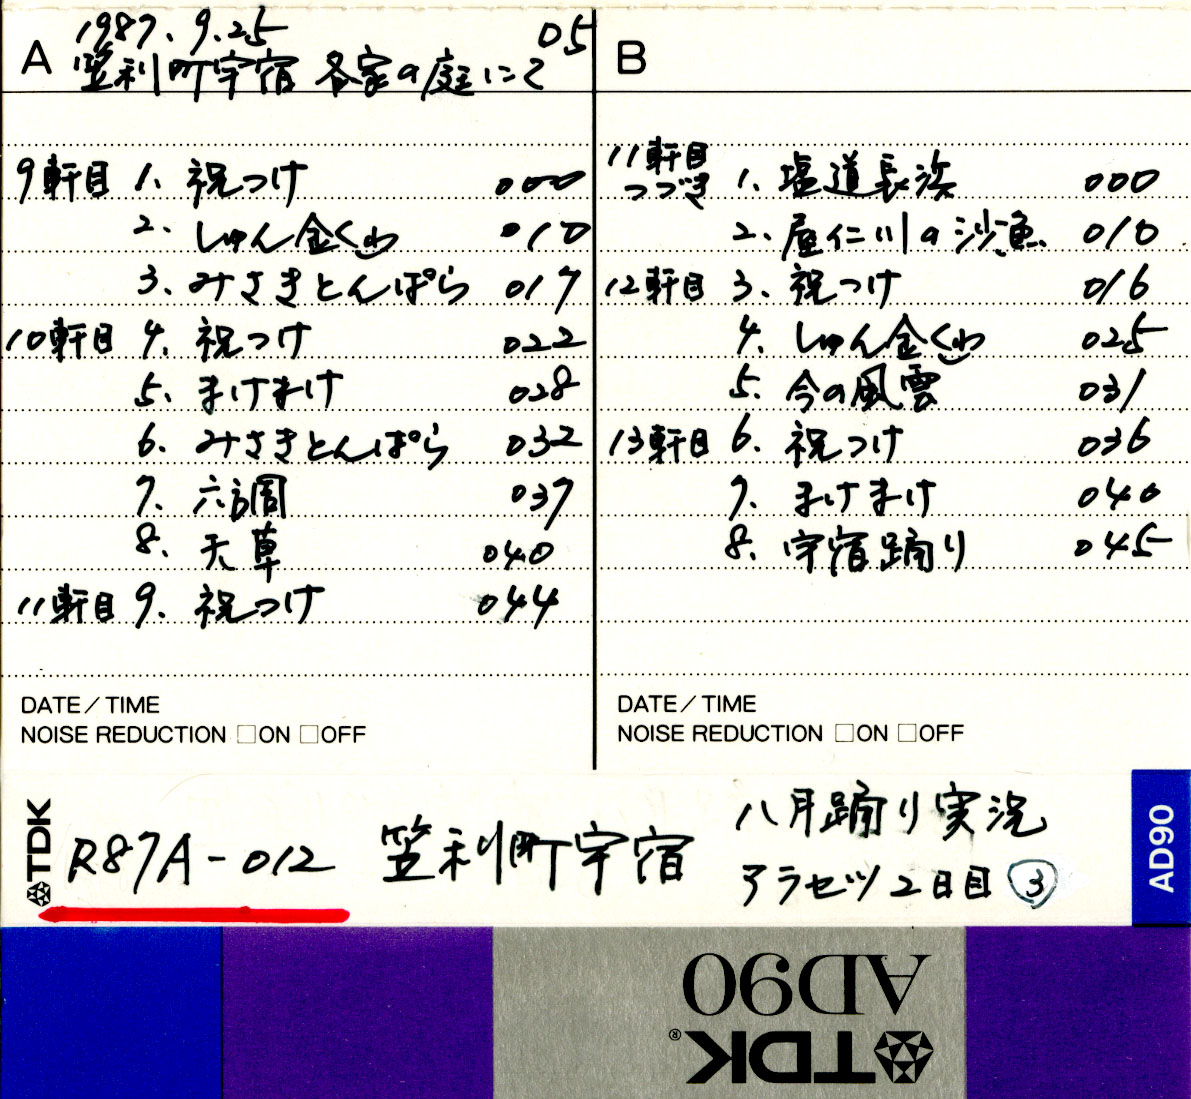 A 1987.9.25 05
笠利町宇宿 各家の庭にて
9軒目 1. 祝つけ 000
2. しゅん金くゎ 010
3. みさきとんぱら 017
10軒目 4. 祝つけ 022
5. まけまけ 028
6. みさきとんぱら 032
7. 六調 037
8. 天草 040
11軒目 9. 祝つけ 044
DATE/TIME
NOISE REDUCTION □ON □OFF
B
11軒目つづき 1. 塩道長浜 000
2. 屋仁川の沙魚 010
12軒目 3. 祝つけ 016
4. しゅん金くゎ 025
5. 今の風雲 031
13軒目 6. 祝つけ 036
7. まけまけ 040
8. 宇宿踊り 045
DATE/TIME
NOISE REDUCTION □ON □OFF
TDK R87A-012 笠利町宇宿 八月踊り実況
アラセツ2日目 ③
AD90
AD90
TDK®